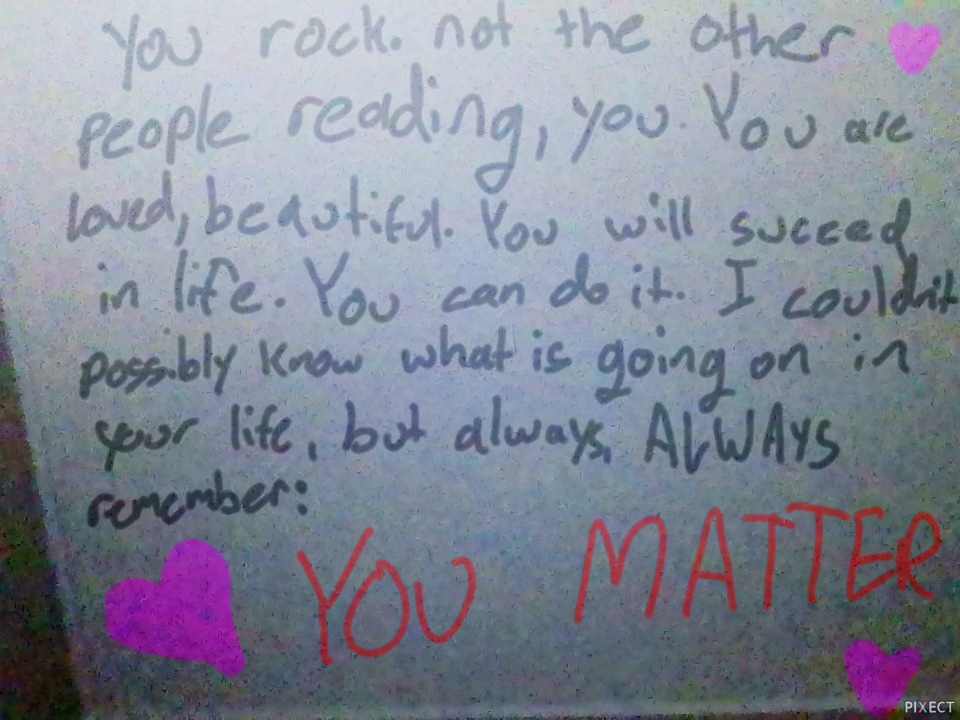 You rock. not the other
people reading, you. You are
loved, beautiful. You will succeed
in life. You can do it. I couldn't
possibly know what is going on in
your life, but always, ALWAYS
remember:
YOU MATTER
PIXECT